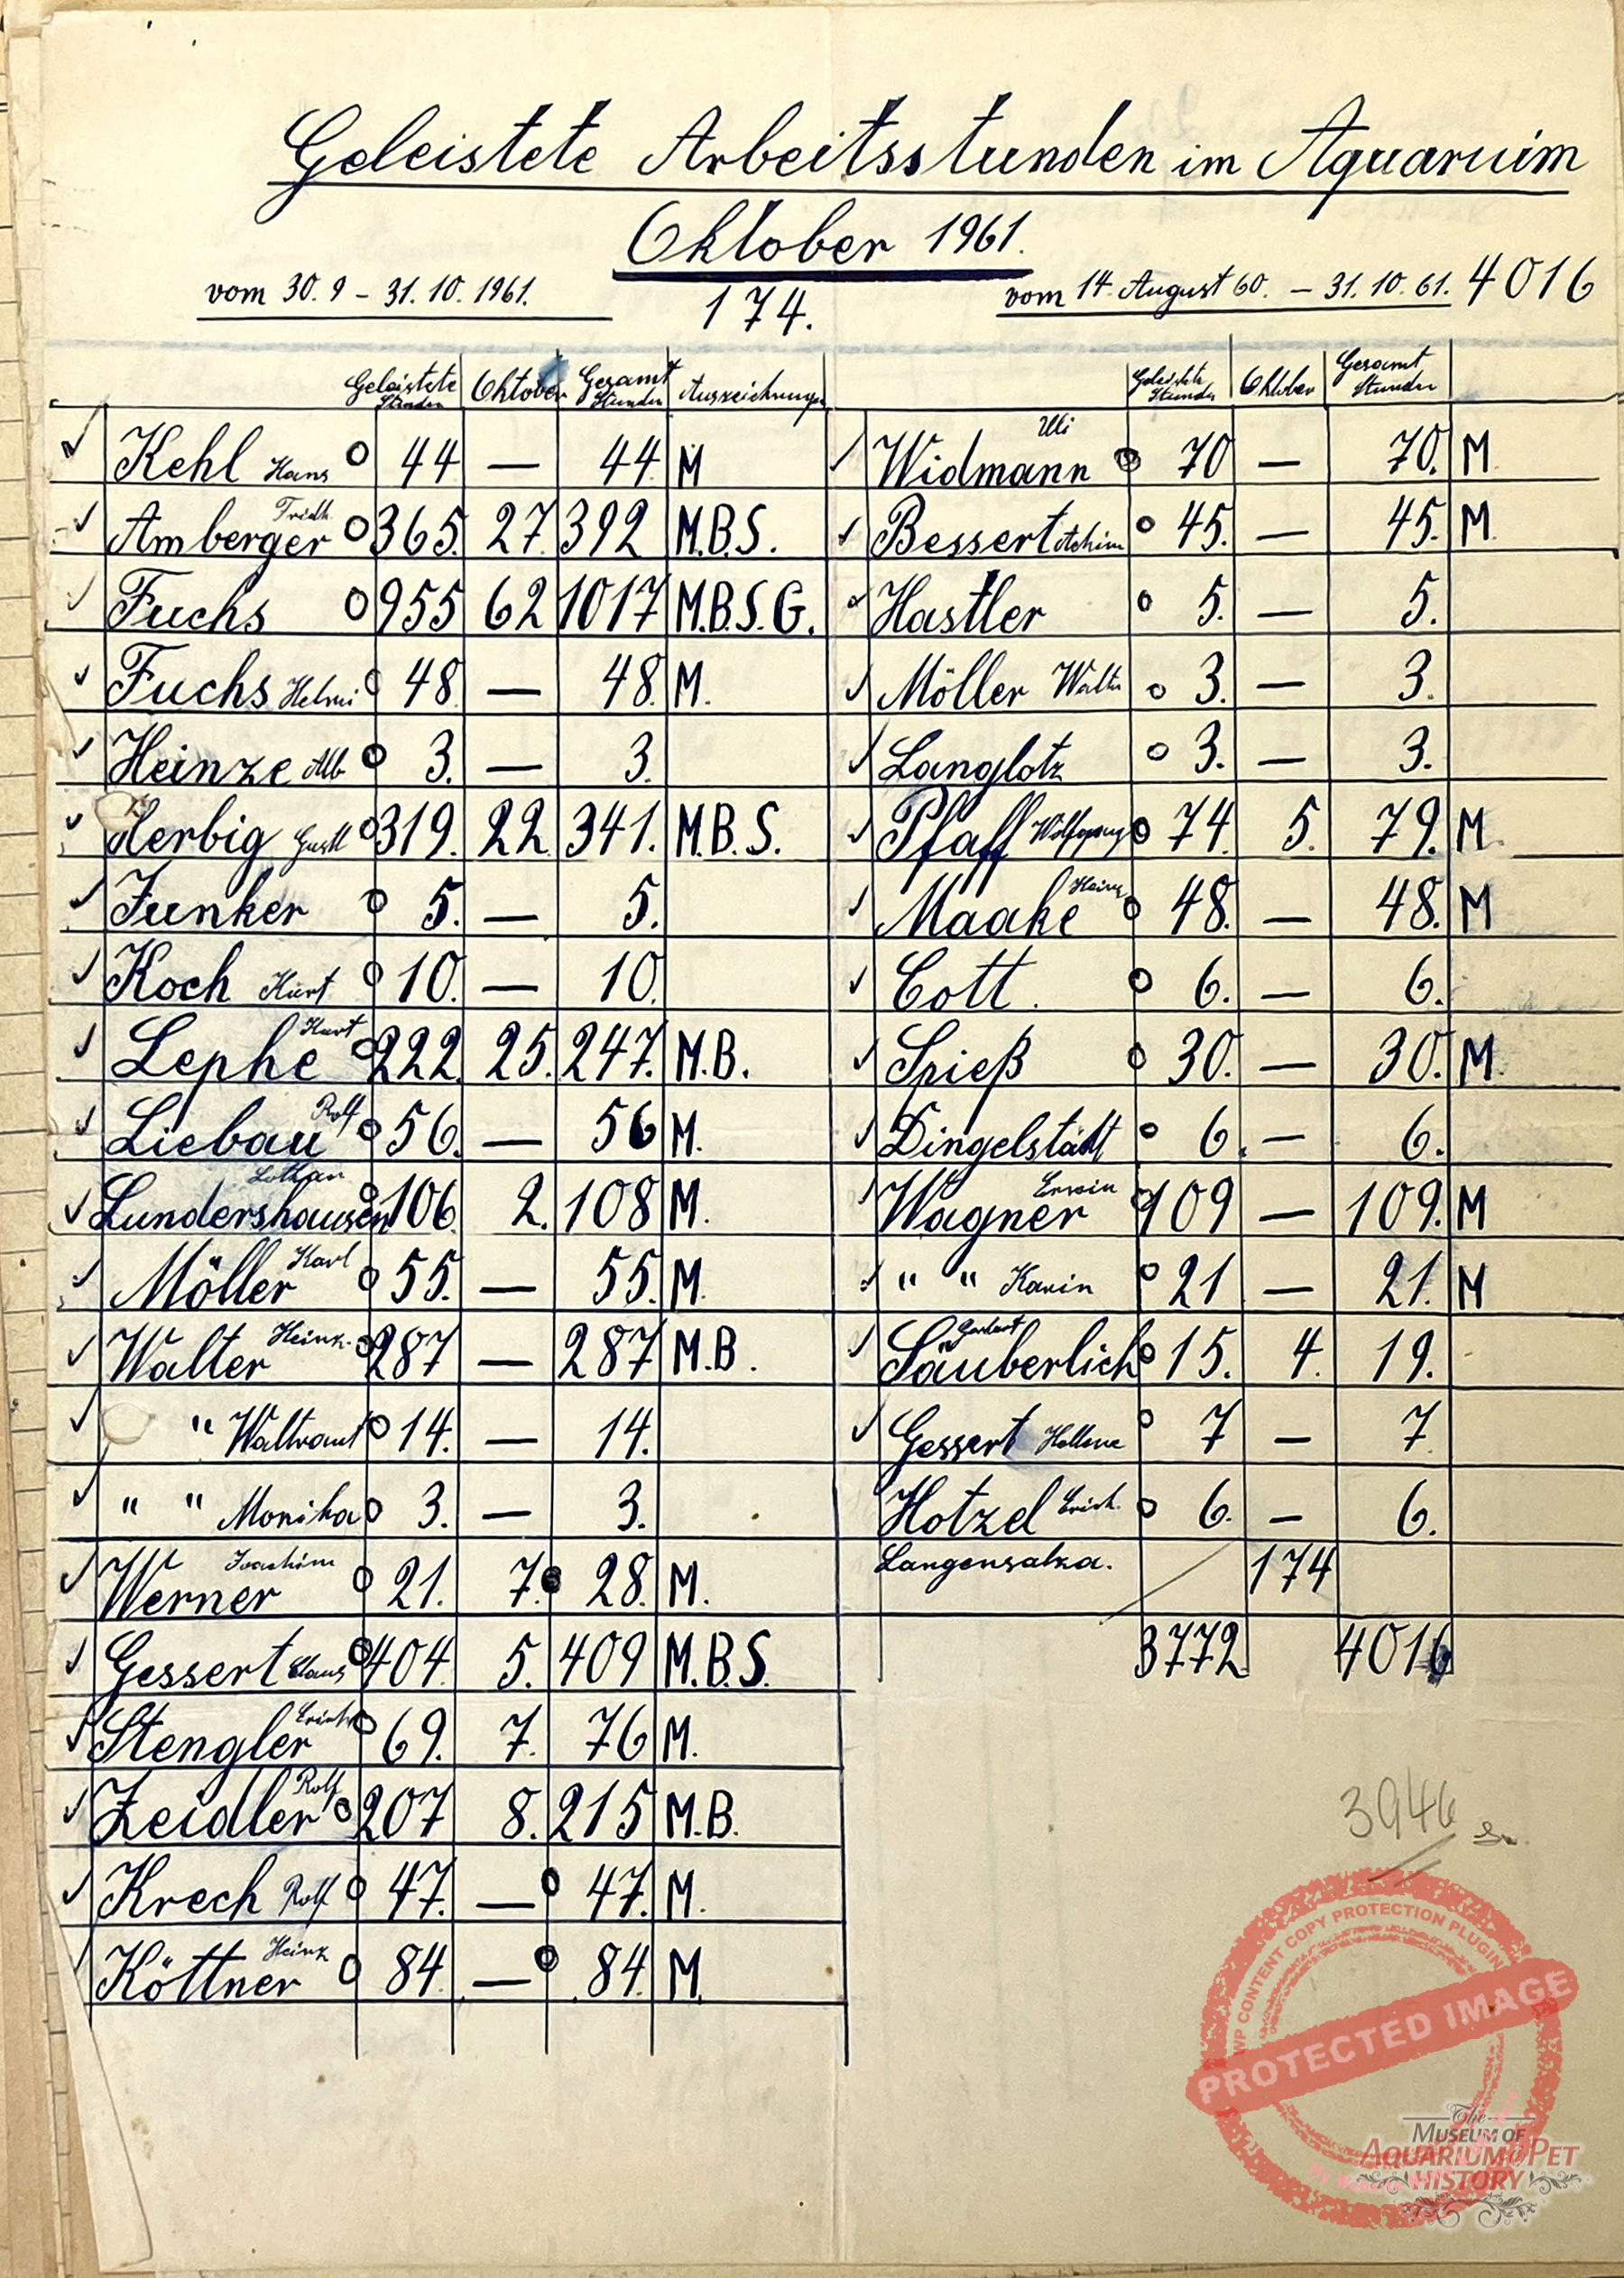 Geleistete Arbeitsstunden im Aquarium
Oktober 1961.
vom 30. 9 – 31. 10. 1961.
174.
vom 14. August 60. – 31. 10. 61. 4016
Geleistete Stunden Oktober Gesamt Stunden Auszeichnungen
✓ Kehl Hans O 44 — 44 M
✓ Amberger O 365. 27. 392 M.B.S.
✓ Fuchs O 955 62 1017 M.B.S.G.
✓ Fuchs Helmi O 48 — 48. M.
✓ Heinze Alb O 3. — 3.
✓ Herbig O 319. 22. 341. M.B.S.
✓ Junker O 5. — 5.
✓ Koch Kurt O 10. — 10.
✓ Lephe Kurt O 222. 25. 247. M.B.
✓ Liebau Rolf O 56. — 56 M.
✓ Lundershausen Lothar O 106. 2. 108 M.
✓ Möller Karl O 55. — 55. M.
✓ Walter Heinz. O 287 — 287 M.B.
✓ " Waltraut O 14. — 14.
✓ " " Monika O 3. — 3.
✓ Werner Joachim O 21. 7. 28. M.
✓ Gessert Klaus O 404. 5. 409 M.B.S.
✓ Stengler Erich O 69. 7. 76 M.
✓ Zeidler Rolf O 207 8. 215 M.B.
✓ Krech Rolf O 47. — 47. M.
Köttner Heinz O 84 — 84. M.
Geleistete Stunden Oktober Gesamt Stunden
✓ Widmann Uli O 70 — 70. M.
✓ Bessert Achim O 45. — 45. M.
✓ Hastler O 5. — 5.
✓ Möller Walter O 3. — 3.
✓ Langlotz O 3. — 3.
✓ Pfaff Wolfgang O 74. 5. 79. M.
✓ Maake Heinz O 48. — 48. M
✓ Cott. O 6. — 6.
✓ Spieß O 30. — 30. M.
✓ Dingelstädt O 6. — 6.
✓ Wagner Erwin O 109 — 109. M
✓ " " Karin O 21 — 21. M
✓ Säuberlich O 15. 4. 19.
✓ Gessert Hellene O 7 — 7
Hotzel Erich. O 6. — 6.
Langensalza. 174
3772 4016
3946
WP CONTENT COPY PROTECTION PLUGIN
PROTECTED IMAGE
The
MUSEUM OF
AQUARIUM & PET
HISTORY